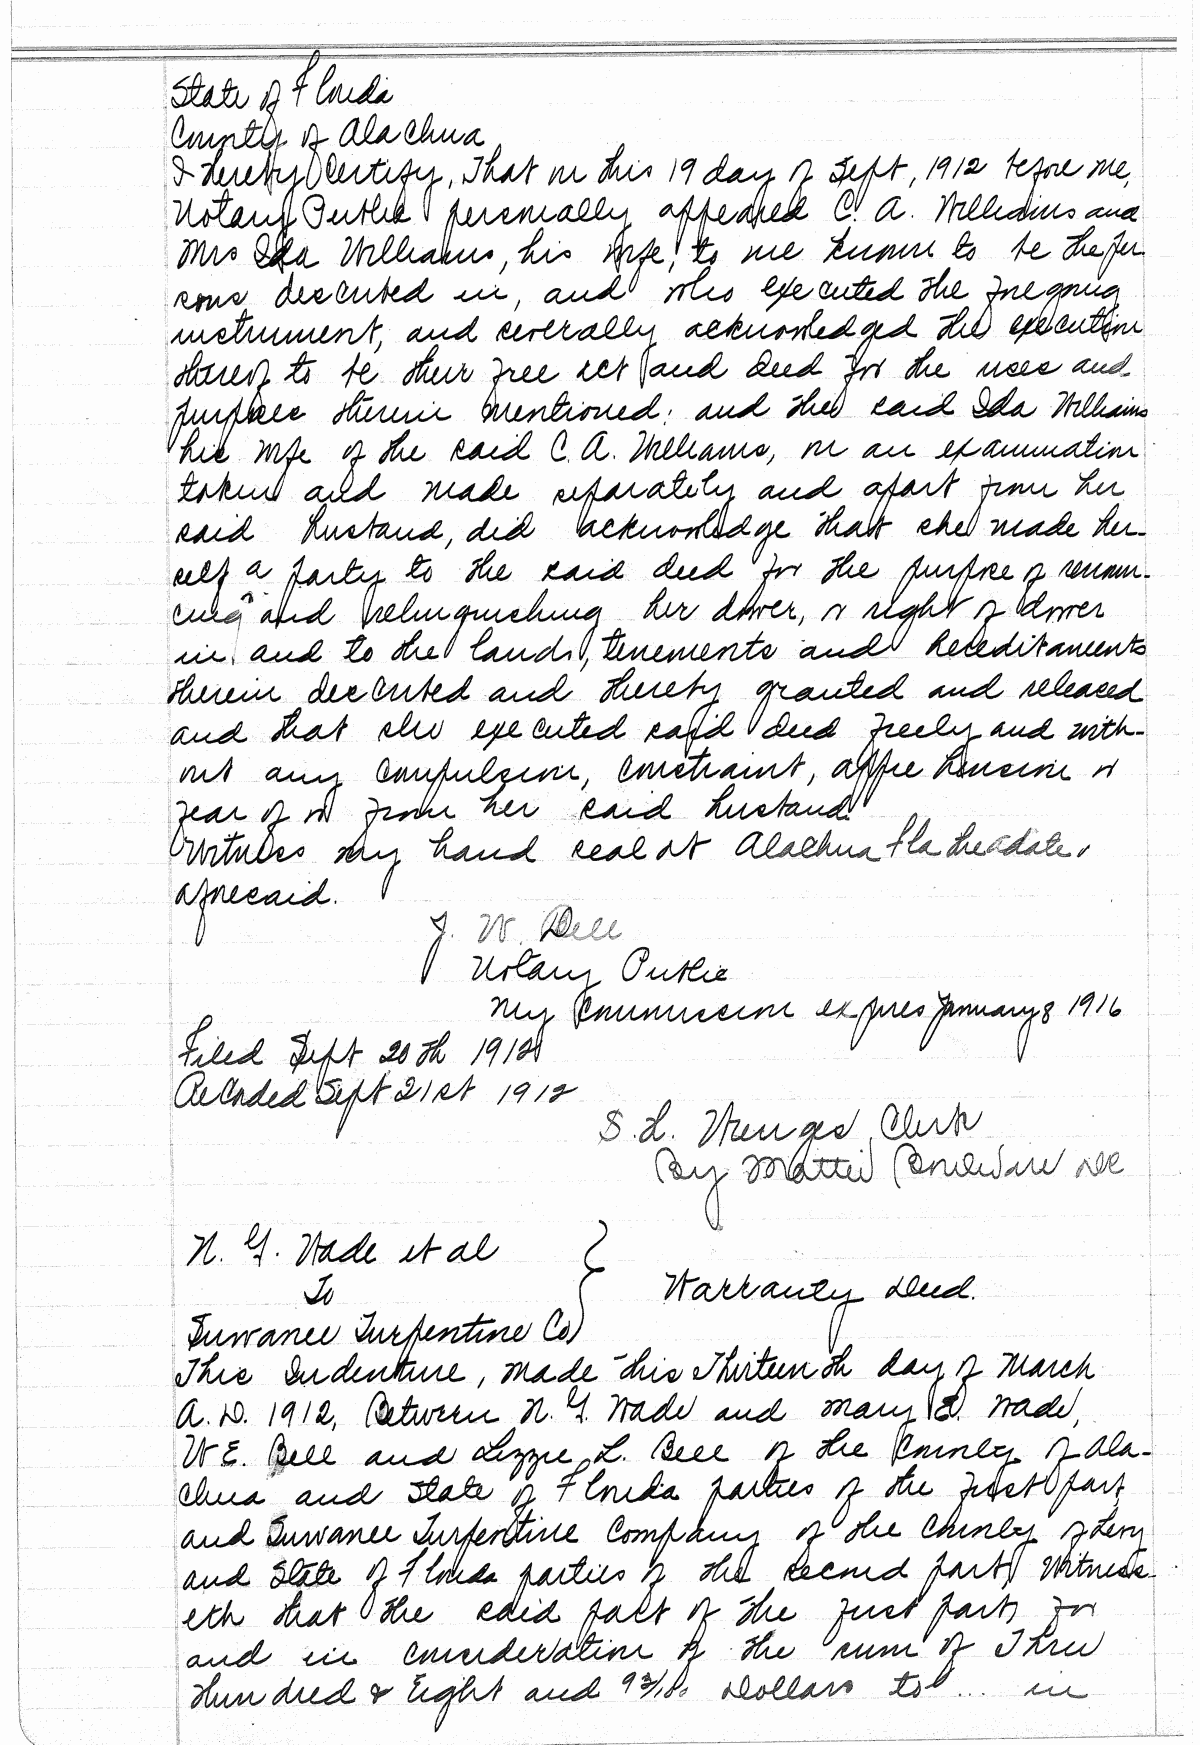 State of Florida
County of Alachua
I hereby Certify, That on this 19 day of Sept, 1912 before me,
Notary Public personally appeared C. A. Williams and
Mrs Ida Williams, his wife, to me known to be the per
sons described in, and who executed the foregoing
instrument, and severally acknowledged the execution
thereof to be their free act and deed for the uses and
purposes therein mentioned: and the said Ida Williams
his wife of the said C. A. Williams, on an examination
taken and made separately and apart from her
said husband, did acknowledge that she made her-
self a party to the said deed for the purpose of renoun-
cing and relinquishing her dower, or right of dower
in, and to the lands, tenements and hereditaments
therein described and thereby granted and released
and that she executed said deed freely and with-
out any compulsion, constraint, apprehension or
fear of or from her said husband.
Witness my hand seal at Alachua Fla the date
aforesaid.
J. W. Dell
Notary Public
My Commission expires January 8 1916
Filed Sept 20th 1912
Recorded Sept 21st 1912
S. H. Wienges Clerk
By Mattie Boulware DC
N. G. Wade et al
To
Suwanee Turpentine Co
Warranty Deed.
This Indenture, made this Thirteenth day of March
A. D. 1912, Between N. G. Wade and Mary E. Wade,
W E. Bell and Lizzie L. Bell of the County of Ala-
chua and State of Florida parties of the first part,
and Suwanee Turpentine Company of the County of Levy
and State of Florida parties of the second part, Witness-
eth that the said part of the first part, for
and in consideration of the sum of Three
Hundred & Eight and 93/100 Dollars to ... in